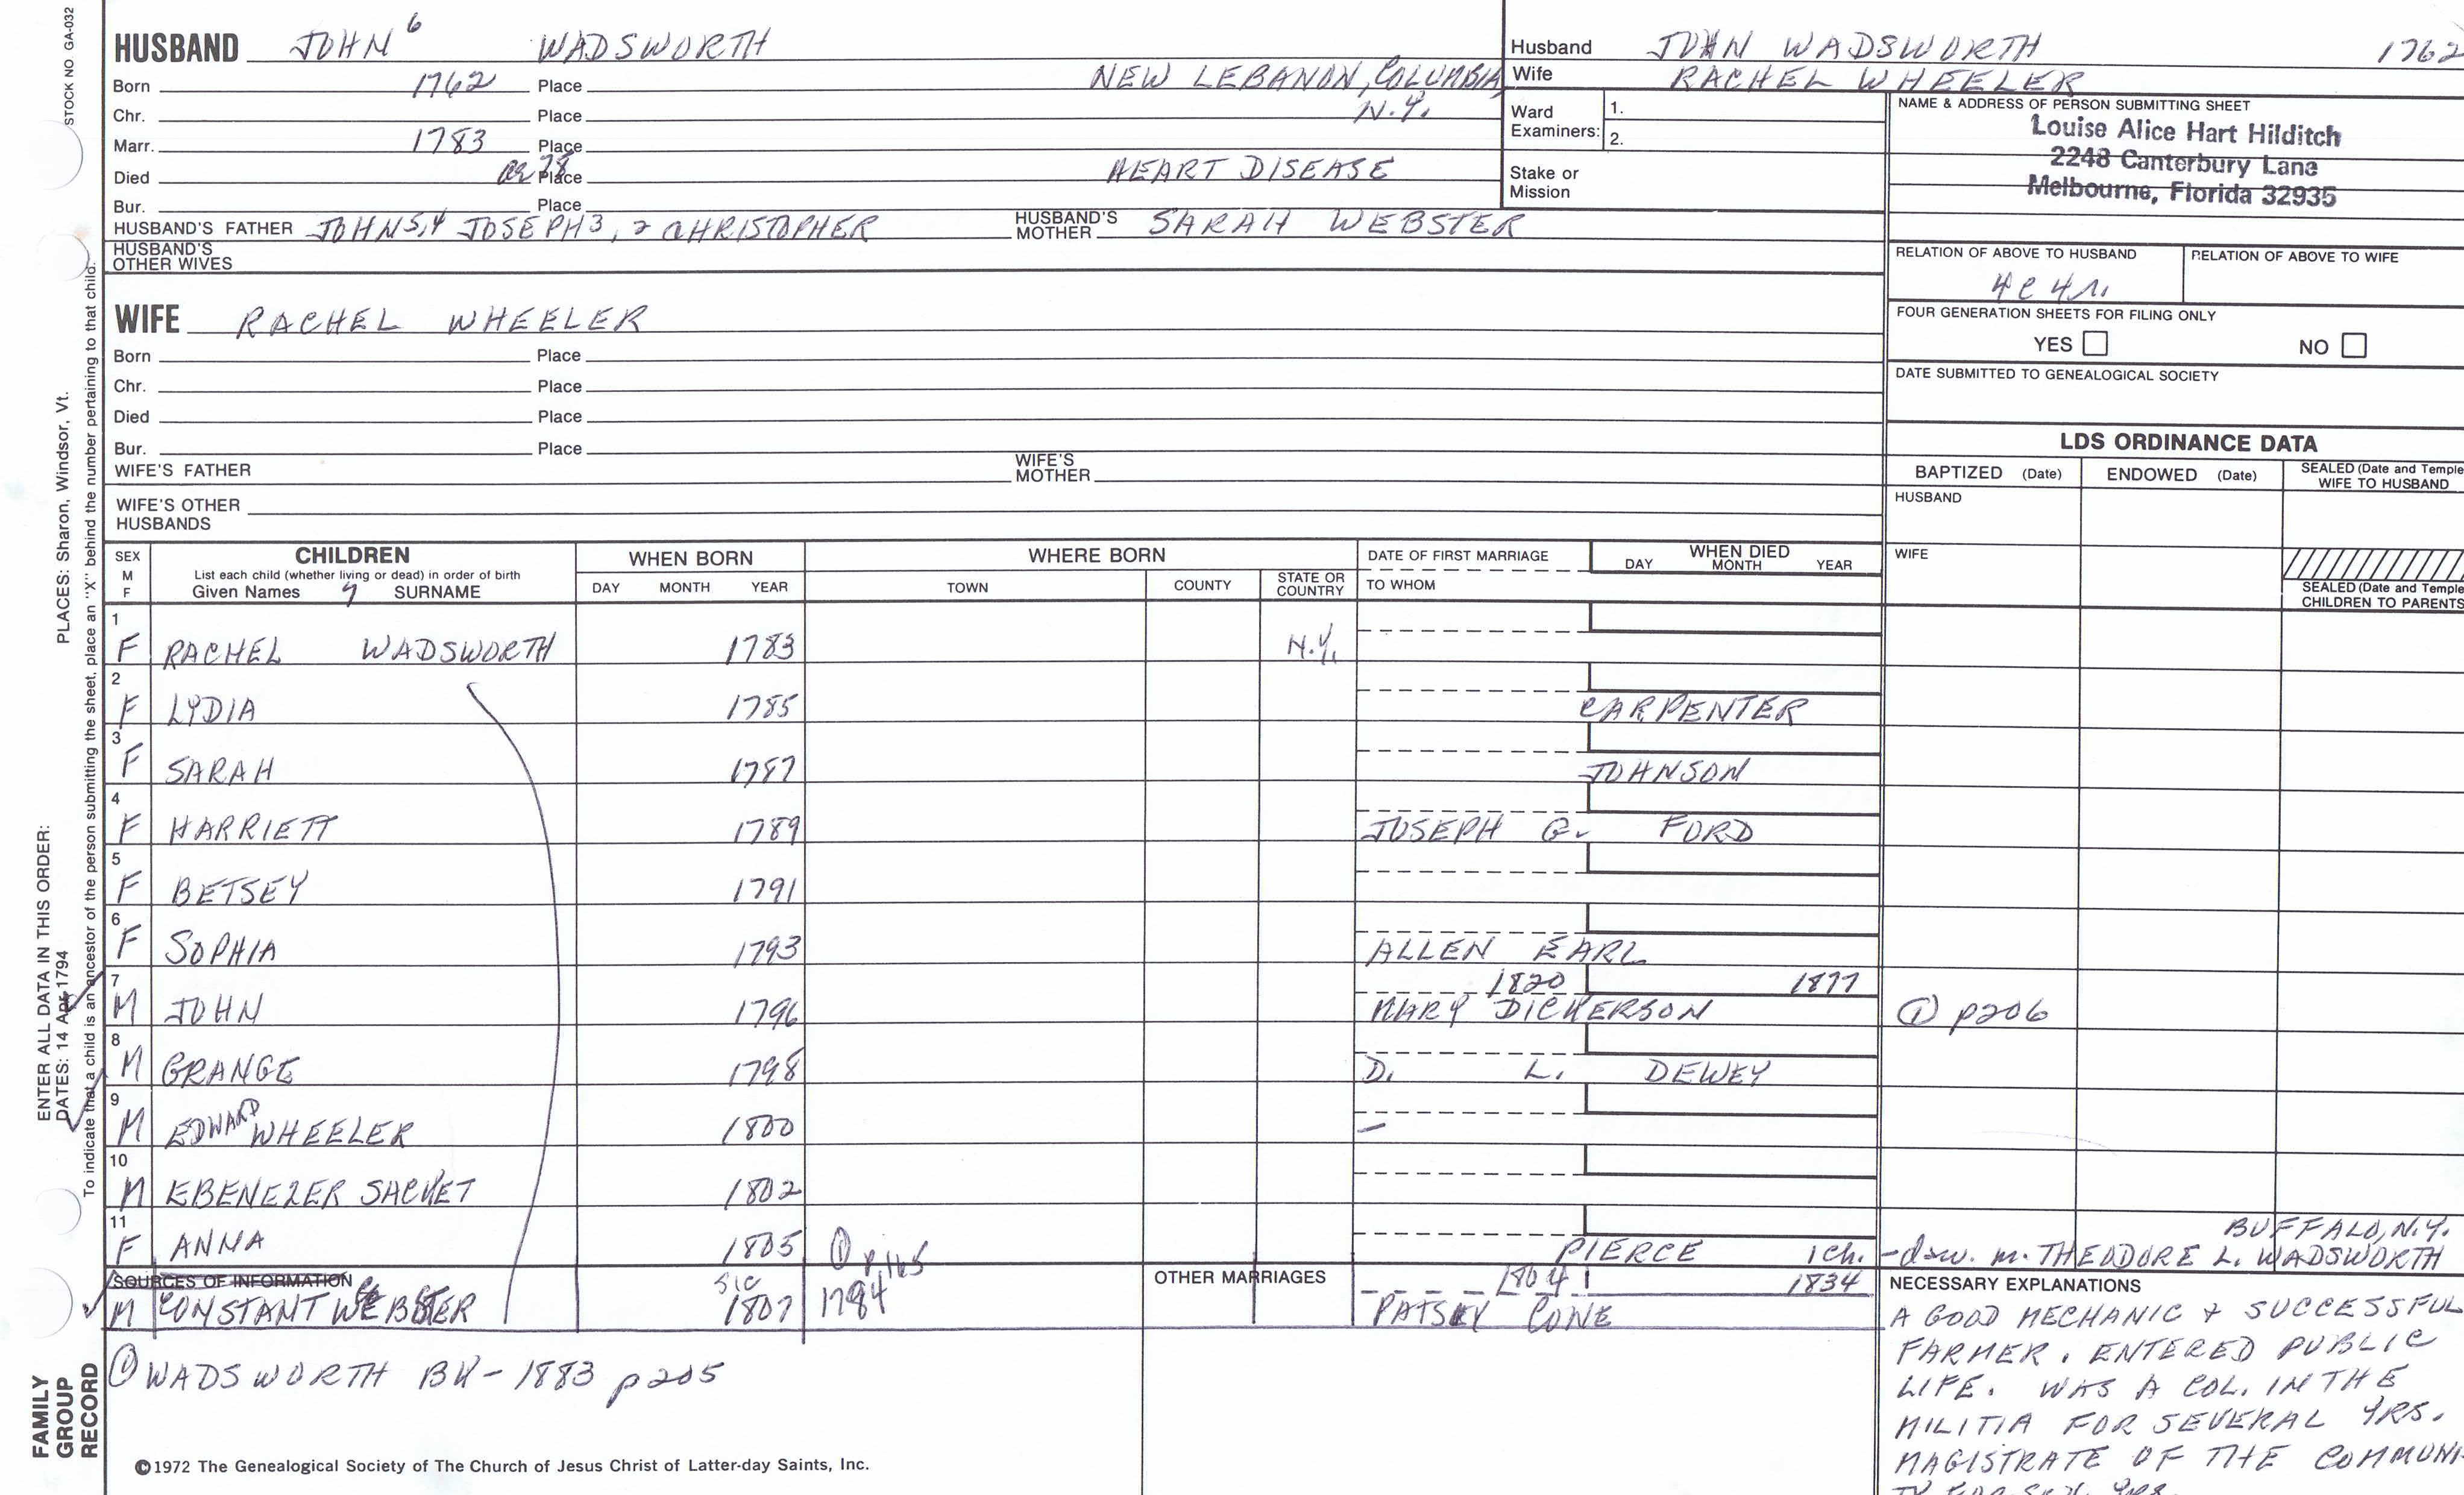 STOCK NO GA-032
HUSBAND JOHN 6 WADSWORTH
Born 1762 Place NEW LEBANON, COLUMBIA
N.Y.
Chr. Place
Marr. 1783 Place
Died ae 78 Place HEART DISEASE
Bur. Place
HUSBAND'S FATHER JOHN 5,4 JOSEPH 3, 2 CHRISTOPHER HUSBAND'S MOTHER SARAH WEBSTER
HUSBAND'S OTHER WIVES
WIFE RACHEL WHEELER
Born Place
Chr. Place
Died Place
Bur. Place
WIFE'S FATHER WIFE'S MOTHER
WIFE'S OTHER HUSBANDS
Husband JOHN WADSWORTH 1762
Wife RACHEL WHEELER
Ward Examiners: 1.
2.
Stake or Mission
NAME & ADDRESS OF PERSON SUBMITTING SHEET
Louise Alice Hart Hilditch
2248 Canterbury Lane
Melbourne, Florida 32935
RELATION OF ABOVE TO HUSBAND RELATION OF ABOVE TO WIFE
4c 4r.
FOUR GENERATION SHEETS FOR FILING ONLY
YES NO
DATE SUBMITTED TO GENEALOGICAL SOCIETY
LDS ORDINANCE DATA
BAPTIZED (Date) ENDOWED (Date) SEALED (Date and Temple
WIFE TO HUSBAND
HUSBAND
WIFE
SEALED (Date and Temple
CHILDREN TO PARENTS
SEX M F CHILDREN WHEN BORN WHERE BORN DATE OF FIRST MARRIAGE WHEN DIED
List each child (whether living or dead) in order of birth
Given Names 7 SURNAME DAY MONTH YEAR TOWN COUNTY STATE OR COUNTRY TO WHOM DAY MONTH YEAR
1 F RACHEL WADSWORTH 1783 N.Y.
2 F LYDIA 1785 CARPENTER
3 F SARAH 1787 JOHNSON
4 F HARRIETT 1789 JOSEPH G. FORD
5 F BETSEY 1791
6 F SOPHIA 1793 ALLEN EARL
7 1820 1877
M JOHN 1796 MARY DICKERSON ① p206
8 M GRANGE 1798 D. L. DEWEY
9 M EDWARD WHEELER 1800 —
10 M EBENEZER SACKET 1802
11 BUFFALO, N.Y.
F ANNA 1805 ① p165 PIERCE 1 ch. - daw. m. THEODORE L. WADSWORTH
SOURCES OF INFORMATION sic OTHER MARRIAGES 1804 1834
M CONSTANT WEBSTER 1807 1784 PATSEY CONE
① WADSWORTH BK - 1883 p205
NECESSARY EXPLANATIONS
A GOOD MECHANIC & SUCCESSFUL
FARMER. ENTERED PUBLIC
LIFE. WAS A COL. IN THE
MILITIA FOR SEVERAL YRS.
MAGISTRATE OF THE COMMUNI-
TY FOR SEV. YRS.
©1972 The Genealogical Society of The Church of Jesus Christ of Latter-day Saints, Inc.
FAMILY
GROUP
RECORD
ENTER ALL DATA IN THIS ORDER:
DATES: 14 Apr 1794 PLACES: Sharon, Windsor, Vt.
To indicate that a child is an ancestor of the person submitting the sheet, place an "X" behind the number pertaining to that child.